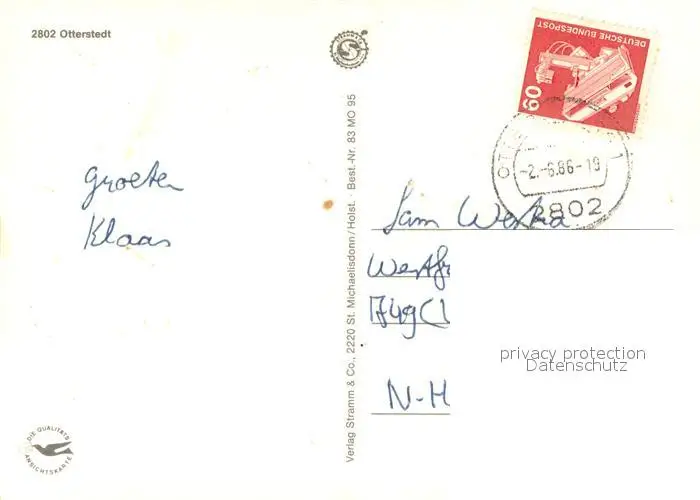 2802 Otterstedt
DEUTSCHE BUNDESPOST
60
-2.-6.86-19
2802
groeten
Klaas
Verlag Stramm & Co., 2220 St. Michaelisdonn/Holst. · Best.-Nr. 83 MO 95
Fam
Westfr
N-H
privacy protection
Datenschutz
DIE QUALITÄTS
ANSICHTSKARTE